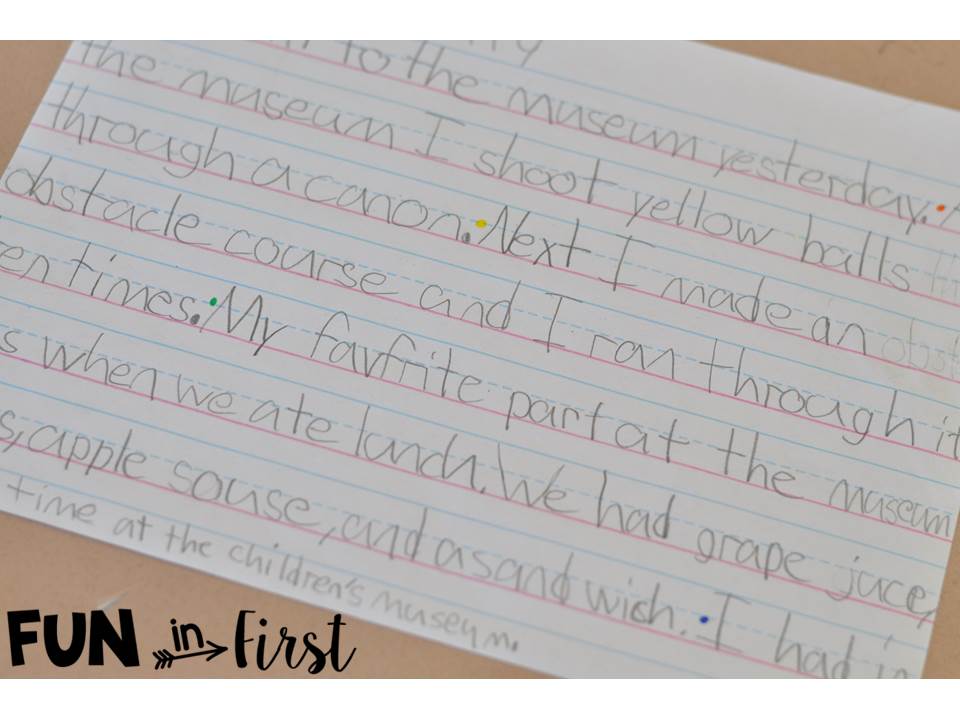 to the museum yesterday.
the museum I shoot yellow balls
through a canon. Next I made an
obstacle course and I ran through it
en times. My favfrite part at the museum
s when we ate lunch. We had grape juce,
s, apple souse, and a sand wich. I had
time at the children's museum.
FUN in First